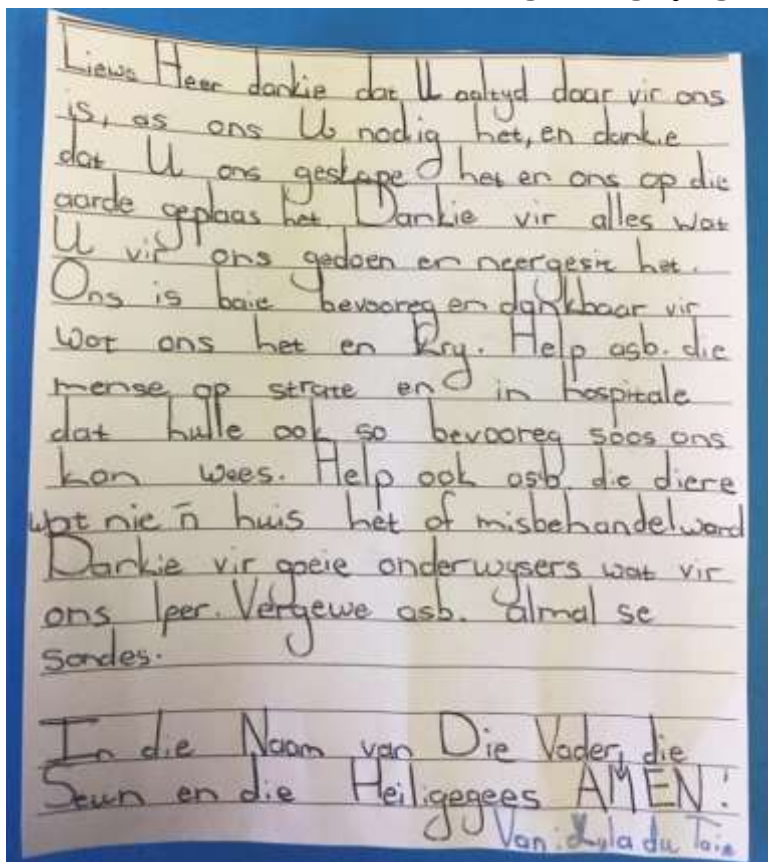 Liewe Heer dankie dat U altyd daar vir ons
is, as ons U nodig het, en dankie
dat U ons geskape het en ons op die
aarde geplaas het. Dankie vir alles wat
U vir ons gedoen en neergesit het.
Ons is baie bevooreg en dankbaar vir
wat ons het en kry. Help asb. die
mense op strate en in hospitale
dat hulle ook so bevooreg soos ons
kan wees. Help ook asb. die diere
wat nie 'n huis het of misbehandel word
Dankie vir goeie onderwysers wat vir
ons leer. Vergewe asb. almal se
sondes.
In die Naam van Die Vader, die
Seun en die Heiligegees AMEN!
Van: du